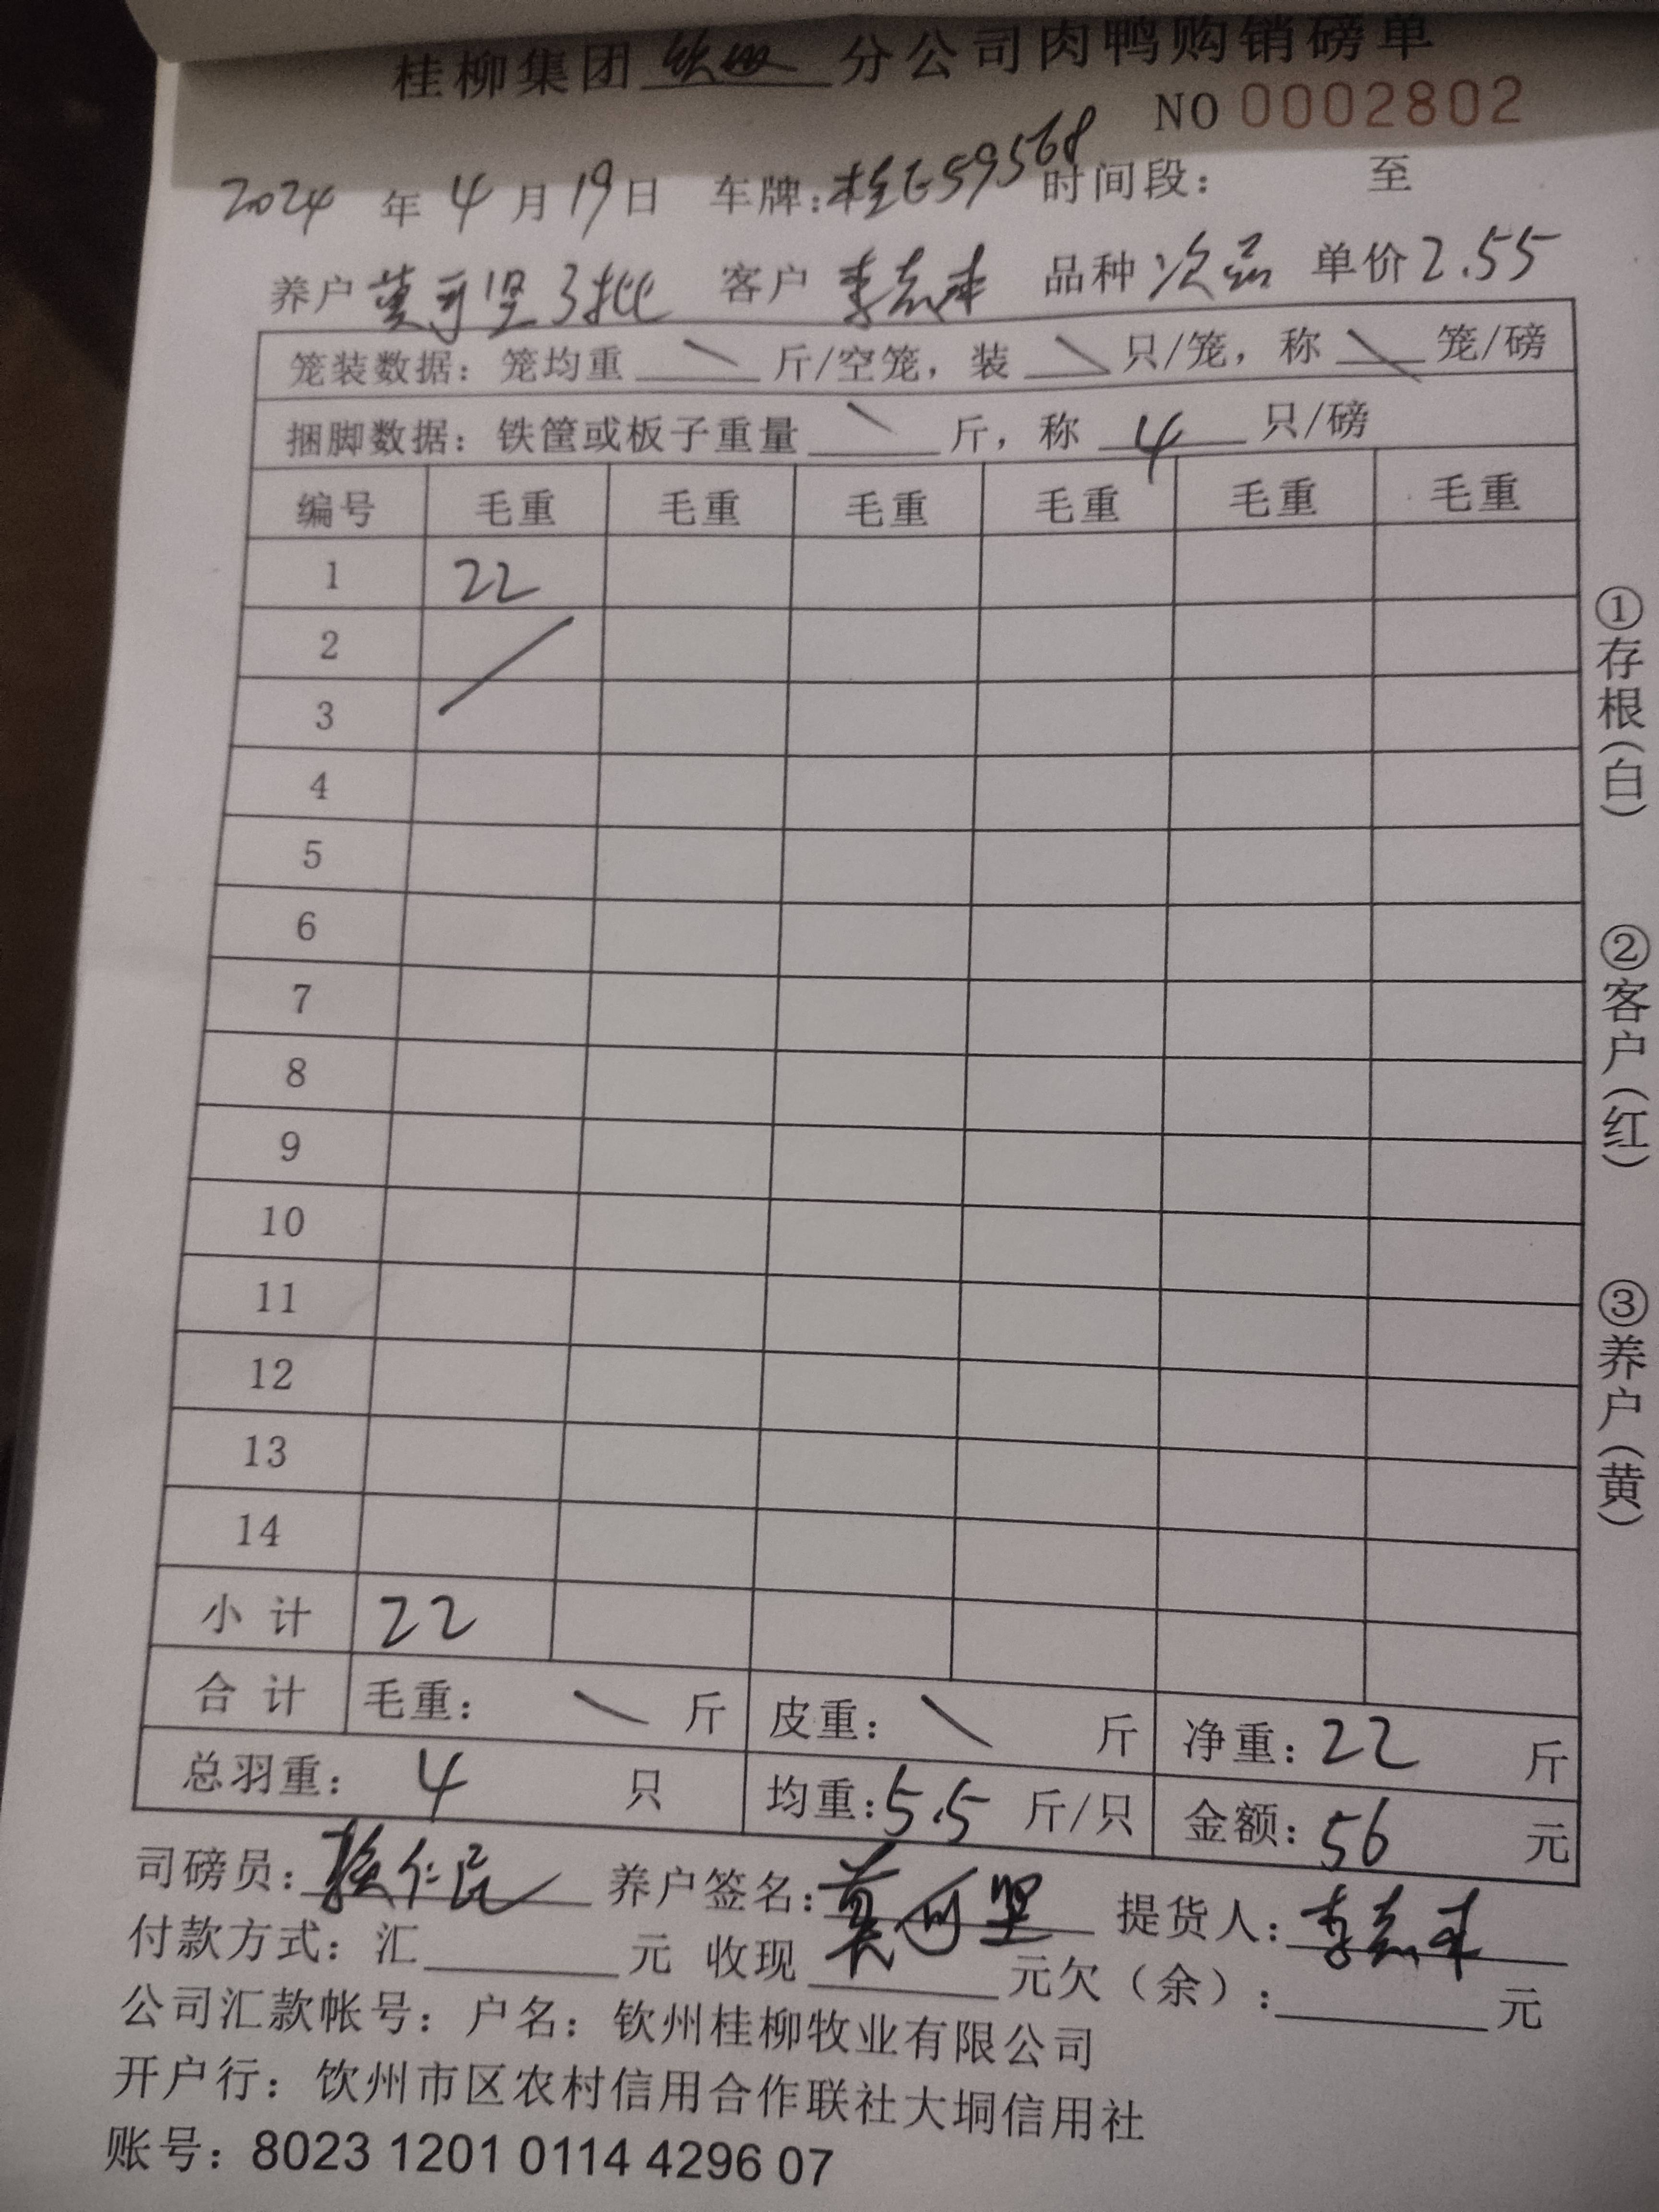 桂柳集团 钦州 分公司肉鸭购销磅单
NO 0002802
2024 年 4 月 19 日 车牌: 桂E59568 时间段: 至
养户 莫可坚3批 客户 李志 品种 次品 单价 2.55
笼装数据: 笼均重 \ 斤/空笼, 装 \ 只/笼, 称 \ 笼/磅
捆脚数据: 铁筐或板子重量 \ 斤, 称 4 只/磅
编号 毛重 毛重 毛重 毛重 毛重 毛重
1 22
2 /
3
4
5
6
7
8
9
10
11
12
13
14
小计 22
合计 毛重: \ 斤 皮重: \ 斤 净重: 22 斤
总羽重: 4 只 均重: 5.5 斤/只 金额: 56 元
司磅员: 仁民 养户签名: 莫可坚 提货人: 李志
付款方式: 汇 元 收现 元欠(余): 元
公司汇款帐号: 户名: 钦州桂柳牧业有限公司
开户行: 钦州市区农村信用合作联社大垌信用社
账号: 8023 1201 0114 4296 07
①存根(白)
②客户(红)
③养户(黄)